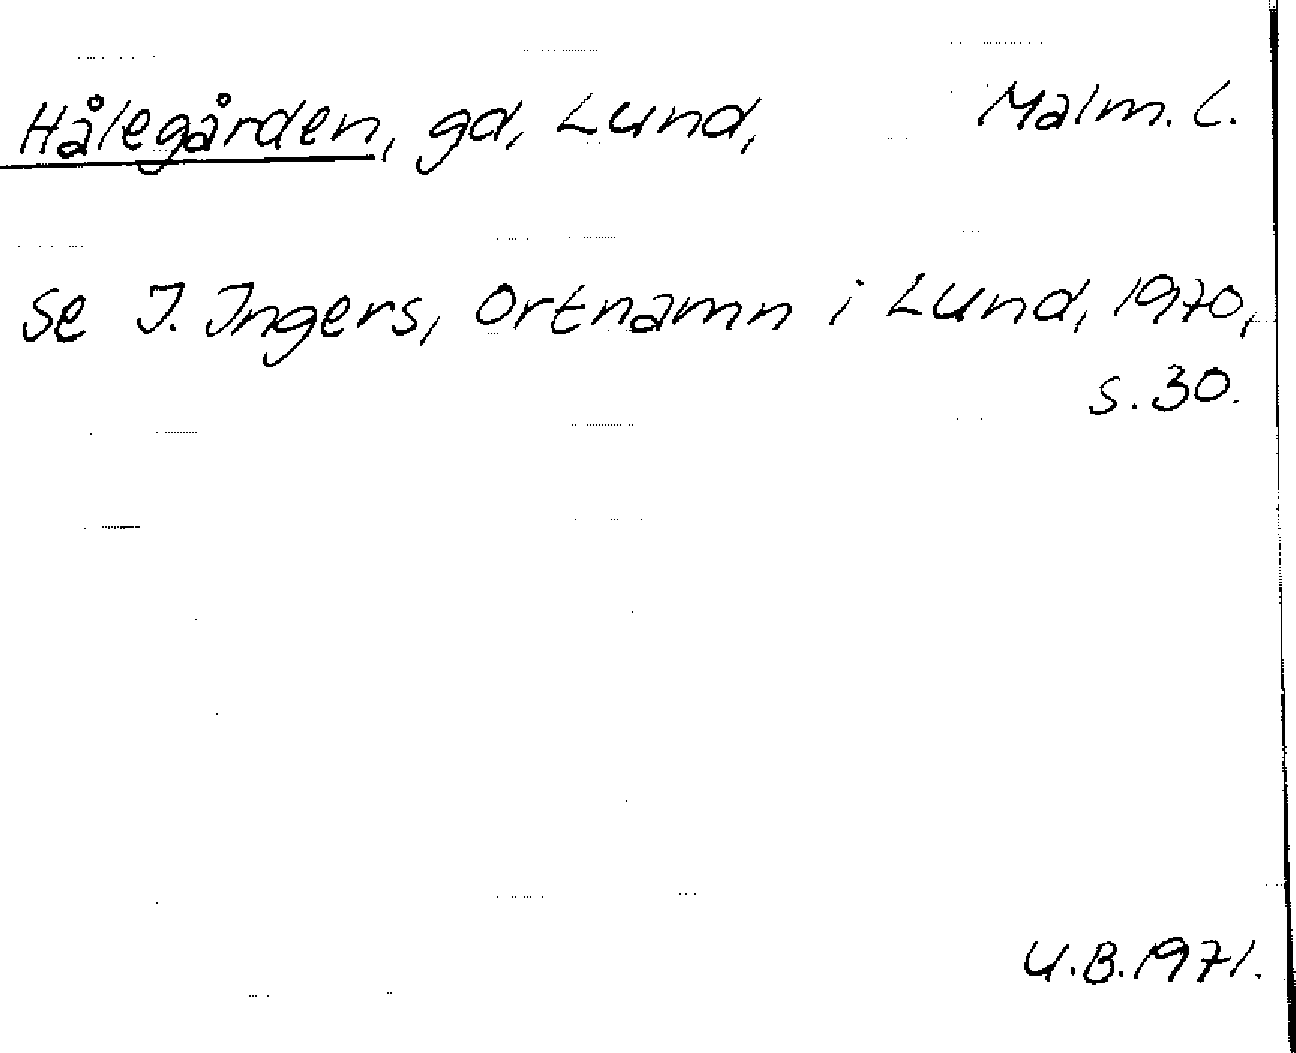 Hålegården, gd, Lund, Malm. L.
Se I. Ingers, Ortnamn i Lund, 1970,
s. 30.
U.B. 1971.